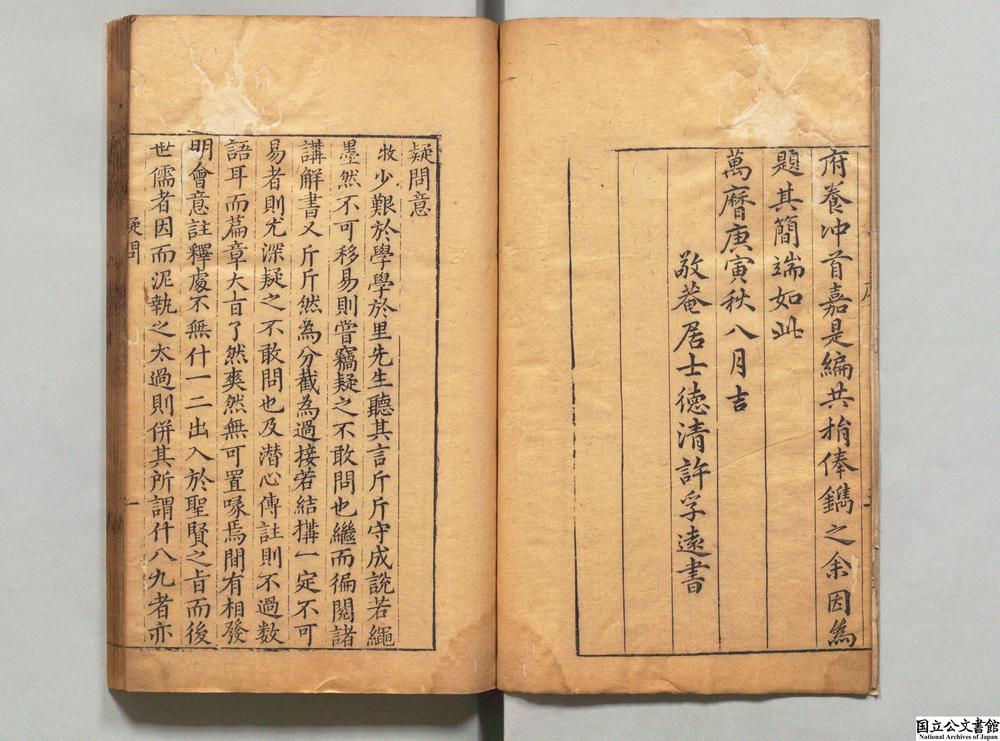 府養冲首嘉是編共捐俸鐫之余因為
題其簡端如此
萬曆庚寅秋八月吉
敬菴居士德清許孚遠書
疑問意
牧少艱於學學於里先生聽其言斤斤守成說若繩
墨然不可移易則嘗竊疑之不敢問也繼而徧閱諸
講解書又斤斤然為分截為過接若結搆一定不可
易者則尤深疑之不敢問也及潛心傳註則不過數
語耳而篇章大旨了然爽然無可置喙焉間有相發
明會意註釋處不無什一二出入於聖賢之旨而後
世儒者因而泥執之太過則併其所謂什八九者亦
疑問
一
国立公文書館
National Archives of Japan